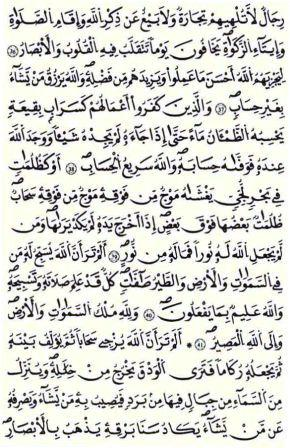 رِجَالٌ لَّا تُلْهِيهِمْ تِجَٰرَةٌ وَلَا بَيْعٌ عَن ذِكْرِ ٱللَّهِ وَإِقَامِ ٱلصَّلَوٰةِ
وَإِيتَآءِ ٱلزَّكَوٰةِ يَخَافُونَ يَوْمًا تَتَقَلَّبُ فِيهِ ٱلْقُلُوبُ وَٱلْأَبْصَٰرُ ٣٦
لِيَجْزِيَهُمُ ٱللَّهُ أَحْسَنَ مَا عَمِلُوا۟ وَيَزِيدَهُم مِّن فَضْلِهِ وَٱللَّهُ يَرْزُقُ مَن يَشَآءُ
بِغَيْرِ حِسَابٍ ٣٧ وَٱلَّذِينَ كَفَرُوٓا۟ أَعْمَٰلُهُمْ كَسَرَابٍ بِقِيعَةٍ
يَحْسِبُهُ ٱلظَّمْـَٔانُ مَآءً حَتَّىٰٓ إِذَا جَآءَهُۥ لَمْ يَجِدْهُ شَيْـًٔا وَوَجَدَ ٱللَّهَ
عِندَهُۥ فَوَفَّىٰهُ حِسَابَهُۥ وَٱللَّهُ سَرِيعُ ٱلْحِسَابِ ٣٨ أَوْ كَظُلُمَٰتٍ
فِى بَحْرٍ لُّجِّىٍّ يَغْشَىٰهُ مَوْجٌ مِّن فَوْقِهِۦ مَوْجٌ مِّن فَوْقِهِۦ سَحَابٌ
ظُلُمَٰتٌ بَعْضُهَا فَوْقَ بَعْضٍ إِذَآ أَخْرَجَ يَدَهُۥ لَمْ يَكَدْ يَرَىٰهَا وَمَن
لَّمْ يَجْعَلِ ٱللَّهُ لَهُۥ نُورًا فَمَا لَهُۥ مِن نُّورٍ ٣٩ أَلَمْ تَرَ أَنَّ ٱللَّهَ يُسَبِّحُ لَهُۥ مَن
فِى ٱلسَّمَٰوَٰتِ وَٱلْأَرْضِ وَٱلطَّيْرُ صَٰٓفَّٰتٍ كُلٌّ قَدْ عَلِمَ صَلَاتَهُۥ وَتَسْبِيحَهُۥ
وَٱللَّهُ عَلِيمٌ بِمَا يَفْعَلُونَ ٤٠ وَلِلَّهِ مُلْكُ ٱلسَّمَٰوَٰتِ وَٱلْأَرْضِ
وَإِلَى ٱللَّهِ ٱلْمَصِيرُ ٤١ * أَلَمْ تَرَ أَنَّ ٱللَّهَ يُزْجِى سَحَابًا ثُمَّ يُؤَلِّفُ بَيْنَهُۥ
ثُمَّ يَجْعَلُهُۥ رُكَامًا فَتَرَى ٱلْوَدْقَ يَخْرُجُ مِنْ خِلَٰلِهِۦ وَيُنَزِّلُ
مِنَ ٱلسَّمَآءِ مِن جِبَالٍ فِيهَا مِن بَرَدٍ فَيُصِيبُ بِهِۦ مَن يَشَآءُ وَيَصْرِفُهُۥ
عَن مَّن يَشَآءُ يَكَادُ سَنَا بَرْقِهِۦ يَذْهَبُ بِٱلْأَبْصَٰرِ